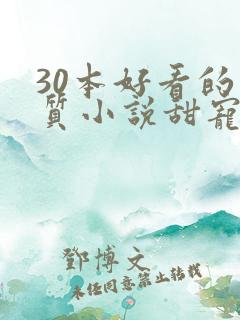 30本好看的
质小說甜寵
鄧博文
未经同意禁止转载